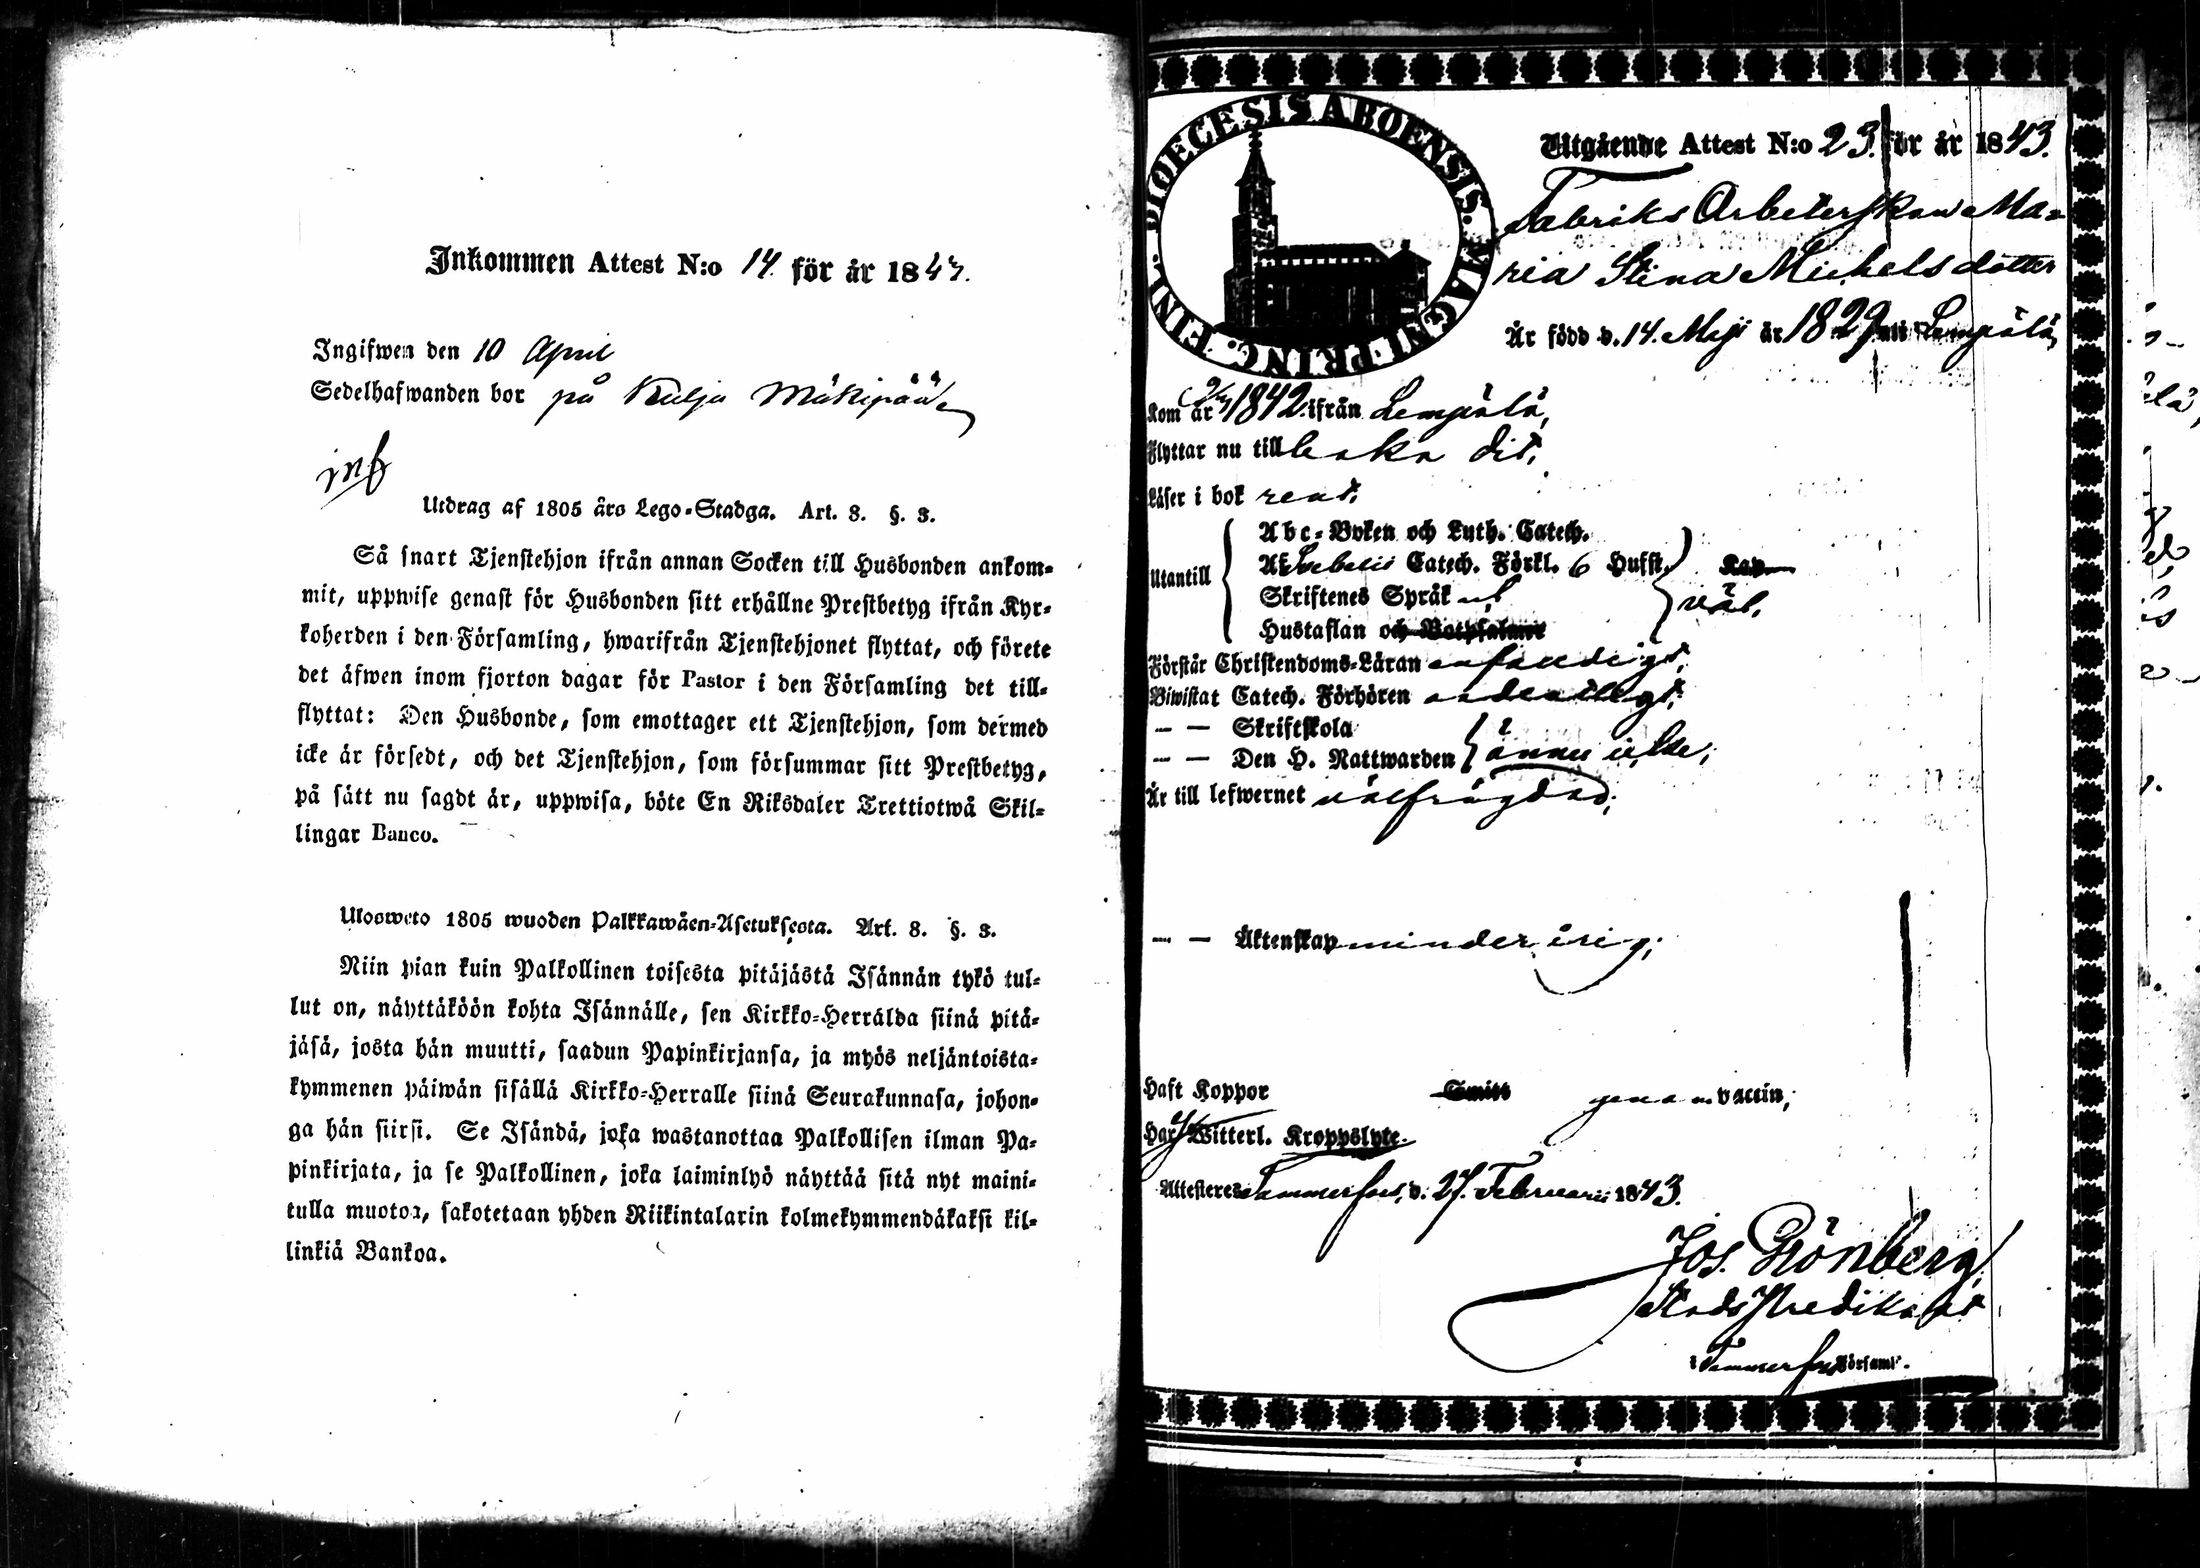 Inkommen Attest N:o 14. för år 1843.
Ingifwen den 10 April
Sedelhafwanden bor på Kulju Mäkipää
inf
Utdrag af 1805 års Lego-Stadga. Art. 8. §. 3.
Så snart Tjenstehjon ifrån annan Socken till Husbonden ankom-
mit, uppwise genast för Husbonden sitt erhållne Prestbetyg ifrån Kyr-
koherden i den Församling, hwarifrån Tjenstehjonet flyttat, och förete
det äfwen inom fjorton dagar för Pastor i den Församling det till-
flyttat: Den Husbonde, som emottager ett Tjenstehjon, som dermed
icke är försedt, och det Tjenstehjon, som försummar sitt Prestbetyg,
på sätt nu sagdt är, uppwisa, böte En Riksdaler Trettiotwå Skil-
lingar Banco.
Ulosweto 1805 wuoden Palkkawäen-Asetuksesta. Art. 8. §. 3.
Niin pian kuin Palkollinen toisesta pitäjästä Isännän tykö tul-
lut on, näyttäköön kohta Isännälle, sen Kirkko-Herralda siinä pitä-
jäsä, josta hän muutti, saadun Papinkirjansa, ja myös neljäntoista-
kymmenen päiwän sisällä Kirkko-Herralle siinä Seurakunnasa, johon-
ga hän siirsi. Se Isändä, joka wastanottaa Palkollisen ilman Pa-
pinkirjata, ja se Palkollinen, joka laiminlyö näyttää sitä nyt maini-
tulla muotoa, sakotetaan yhden Riikintalarin kolmekymmendäkaksi kil-
linkiä Bankoa.
DIOECESIS ABOENSIS. MAGNI PRINC. FINL.
Utgående Attest N:o 23. för år 1843.
Fabriks Arbeterskan Ma=
ria Stina Michelsdotter
Är född d. 14. Maji år 1829 uti Lempälä,
Kom år 1842. ifrån Lempälä,
Flyttar nu till baka dit,
Läser i bok rent,
Utantill
Abc-Boken och Luth. Catech.
Af Svebelii Catech. Förkl. 6 Hufst.
Skriftenes Språk
Hustaflan och Botpsalmer
väl,
Förstår Christendoms-Läran enfaldigt,
Biwistat Catech. Förhören ordentligt,
— — Skriftskola
— — Den H. Nattwarden ännu icke,
Är till lefwernet välfrägdad,
— — Äktenskap minderårig,
Haft Koppor Smitt genom vaccin,
Har Witterl. Kroppslyte.
Attesteres Tammerfors, d. 27. Februarii 1843.
Jos. Grönberg,
Stads Predikant
i Tammerfors Församl.